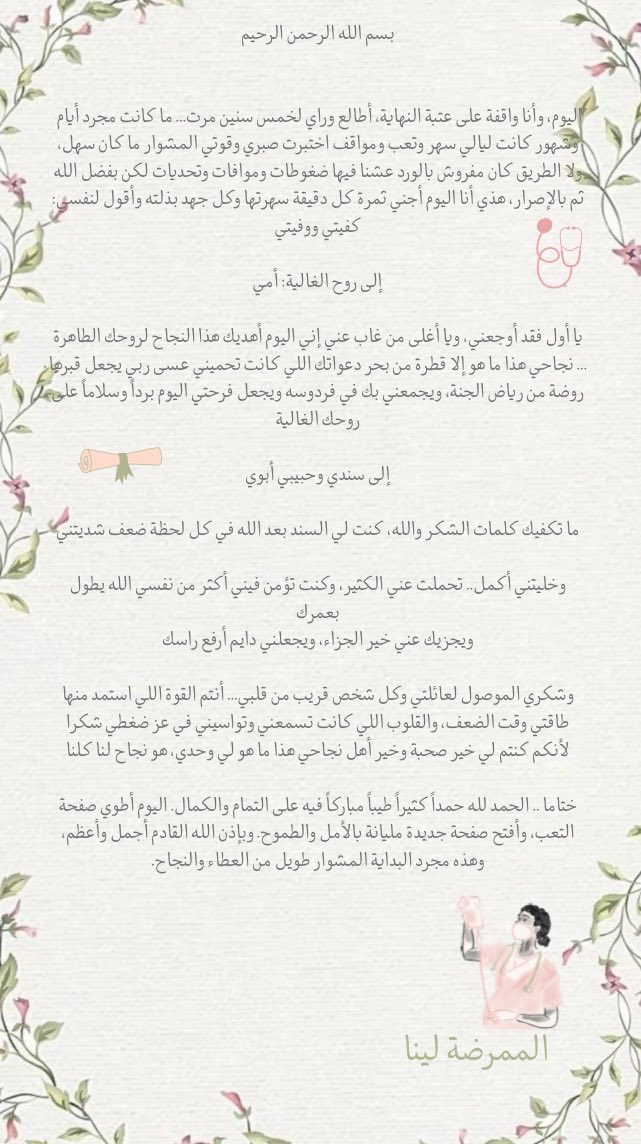 بسم الله الرحمن الرحيم
اليوم، وأنا واقفة على عتبة النهاية، أطالع وراي لخمس سنين مرت... ما كانت مجرد أيام
وشهور كانت ليالي سهر وتعب ومواقف اختبرت صبري وقوتي المشوار ما كان سهل،
ولا الطريق كان مفروش بالورد عشنا فيها ضغوطات وموافات وتحديات لكن بفضل الله
ثم بالإصرار، هذي أنا اليوم أجني ثمرة كل دقيقة سهرتها وكل جهد بذلته وأقول لنفسي:
كفيتي ووفيتي
إلى روح الغالية: أمي
يا أول فقد أوجعني، ويا أغلى من غاب عني إني اليوم أهديك هذا النجاح لروحك الطاهرة
... نجاحي هذا ما هو إلا قطرة من بحر دعواتك اللي كانت تحميني عسى ربي يجعل قبرها
روضة من رياض الجنة، ويجمعني بك في فردوسه ويجعل فرحتي اليوم برداً وسلاماً على
روحك الغالية
إلى سندي وحبيبي أبوي
ما تكفيك كلمات الشكر والله، كنت لي السند بعد الله في كل لحظة ضعف شديتني
وخليتني أكمل.. تحملت عني الكثير، وكنت تؤمن فيني أكثر من نفسي الله يطول
بعمرك
ويجزيك عني خير الجزاء، ويجعلني دايم أرفع راسك
وشكري الموصول لعائلتي وكل شخص قريب من قلبي... أنتم القوة اللي استمد منها
طاقتي وقت الضعف، والقلوب اللي كانت تسمعني وتواسيني في عز ضغطي شكرا
لأنكم كنتم لي خير صحبة وخير أهل نجاحي هذا ما هو لي وحدي، هو نجاح لنا كلنا
ختاما .. الحمد لله حمداً كثيراً طيباً مباركاً فيه على التمام والكمال. اليوم أطوي صفحة
التعب، وأفتح صفحة جديدة مليانة بالأمل والطموح. وبإذن الله القادم أجمل وأعظم،
وهذه مجرد البداية المشوار طويل من العطاء والنجاح.
الممرضة لينا